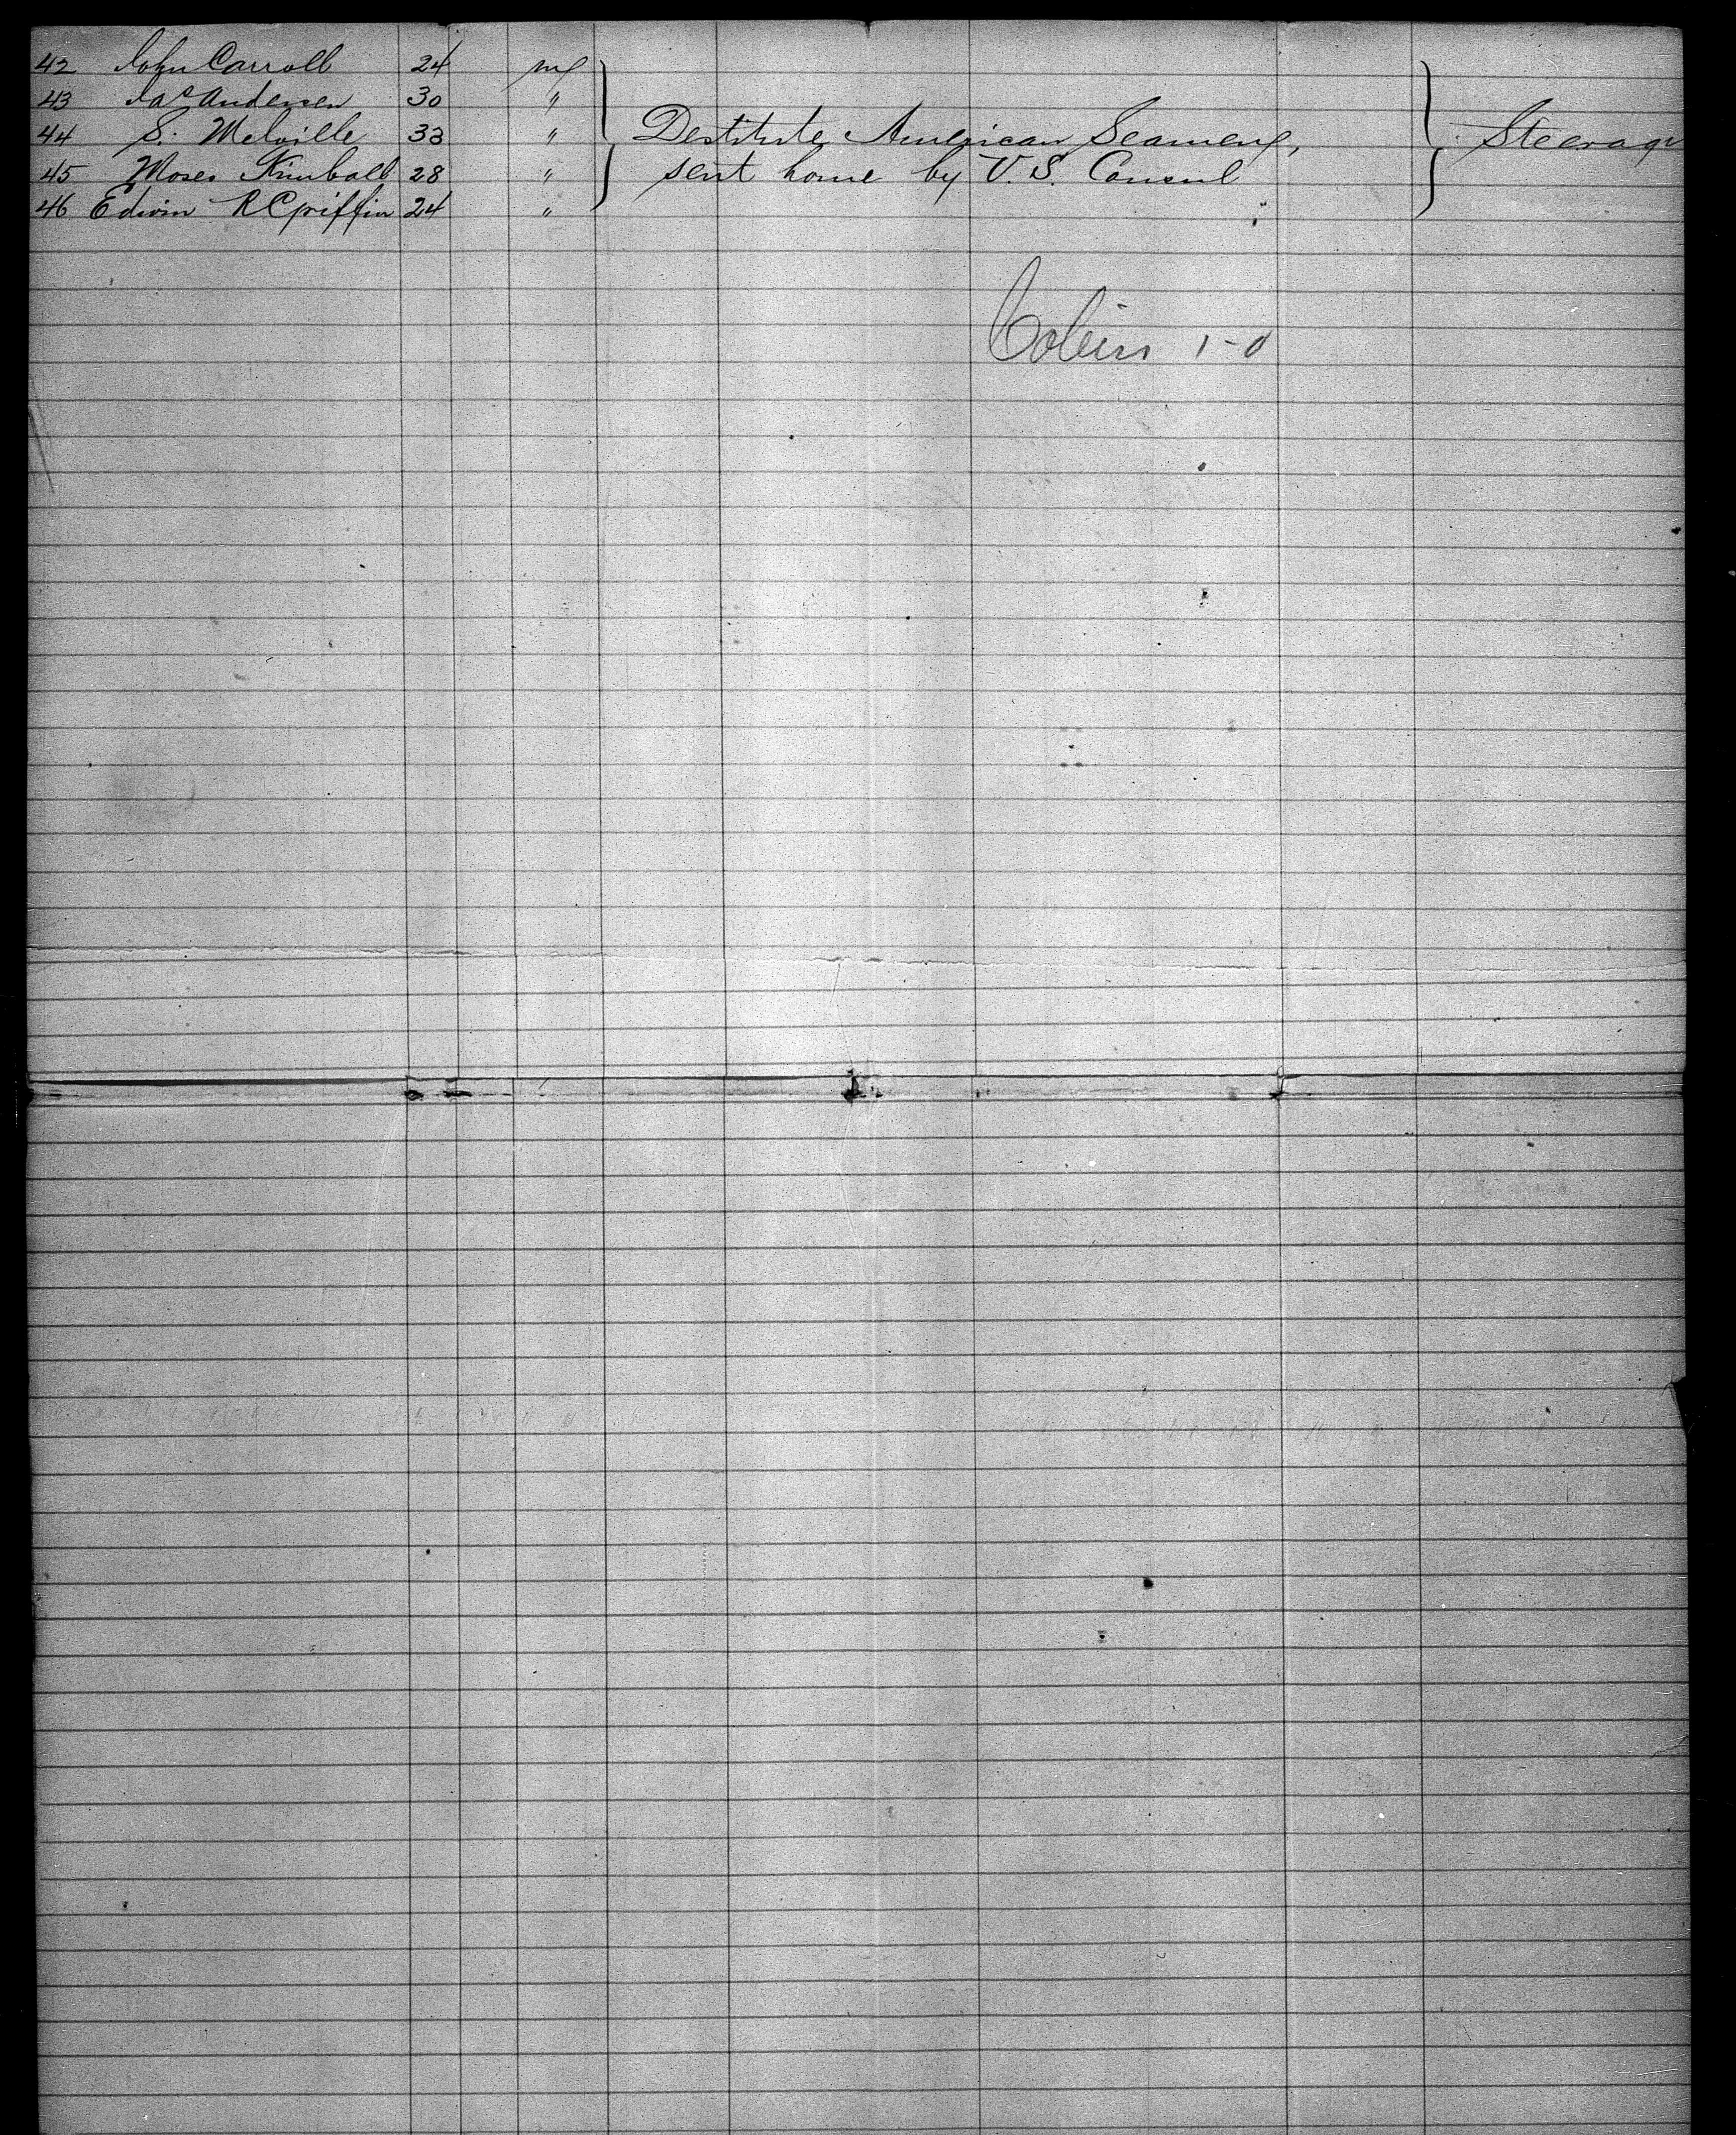 42 John Carroll 24 m
43 Jas Andersen 30 "
44 S. Melville 33 " Destitute American Seamen, Steerage
45 Moses Kimball 28 " sent home by U.S. Consul
46 Edwin R Griffin 24 "
1-0